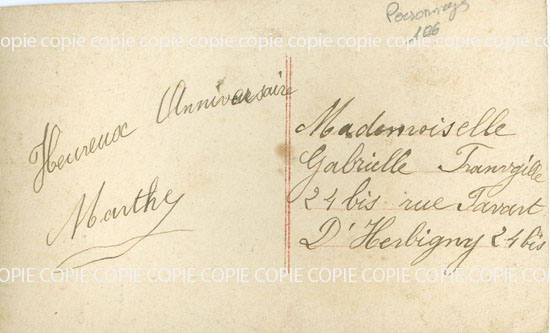 Personnages
106
Heureux Anniversaire
Marthe
Mademoiselle
Gabrielle
24 bis rue Favart
D'Herbigny 24 bis
COPIE COPIE COPIE COPIE COPIE COPIE COPIE COPIE COPIE
COPIE COPIE COPIE COPIE COPIE COPIE COPIE COPIE COPIE
COPIE COPIE COPIE COPIE COPIE COPIE COPIE COPIE COPIE